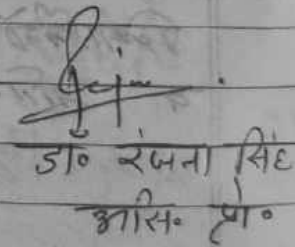 डा० रंजना सिंह
असि० प्रो०